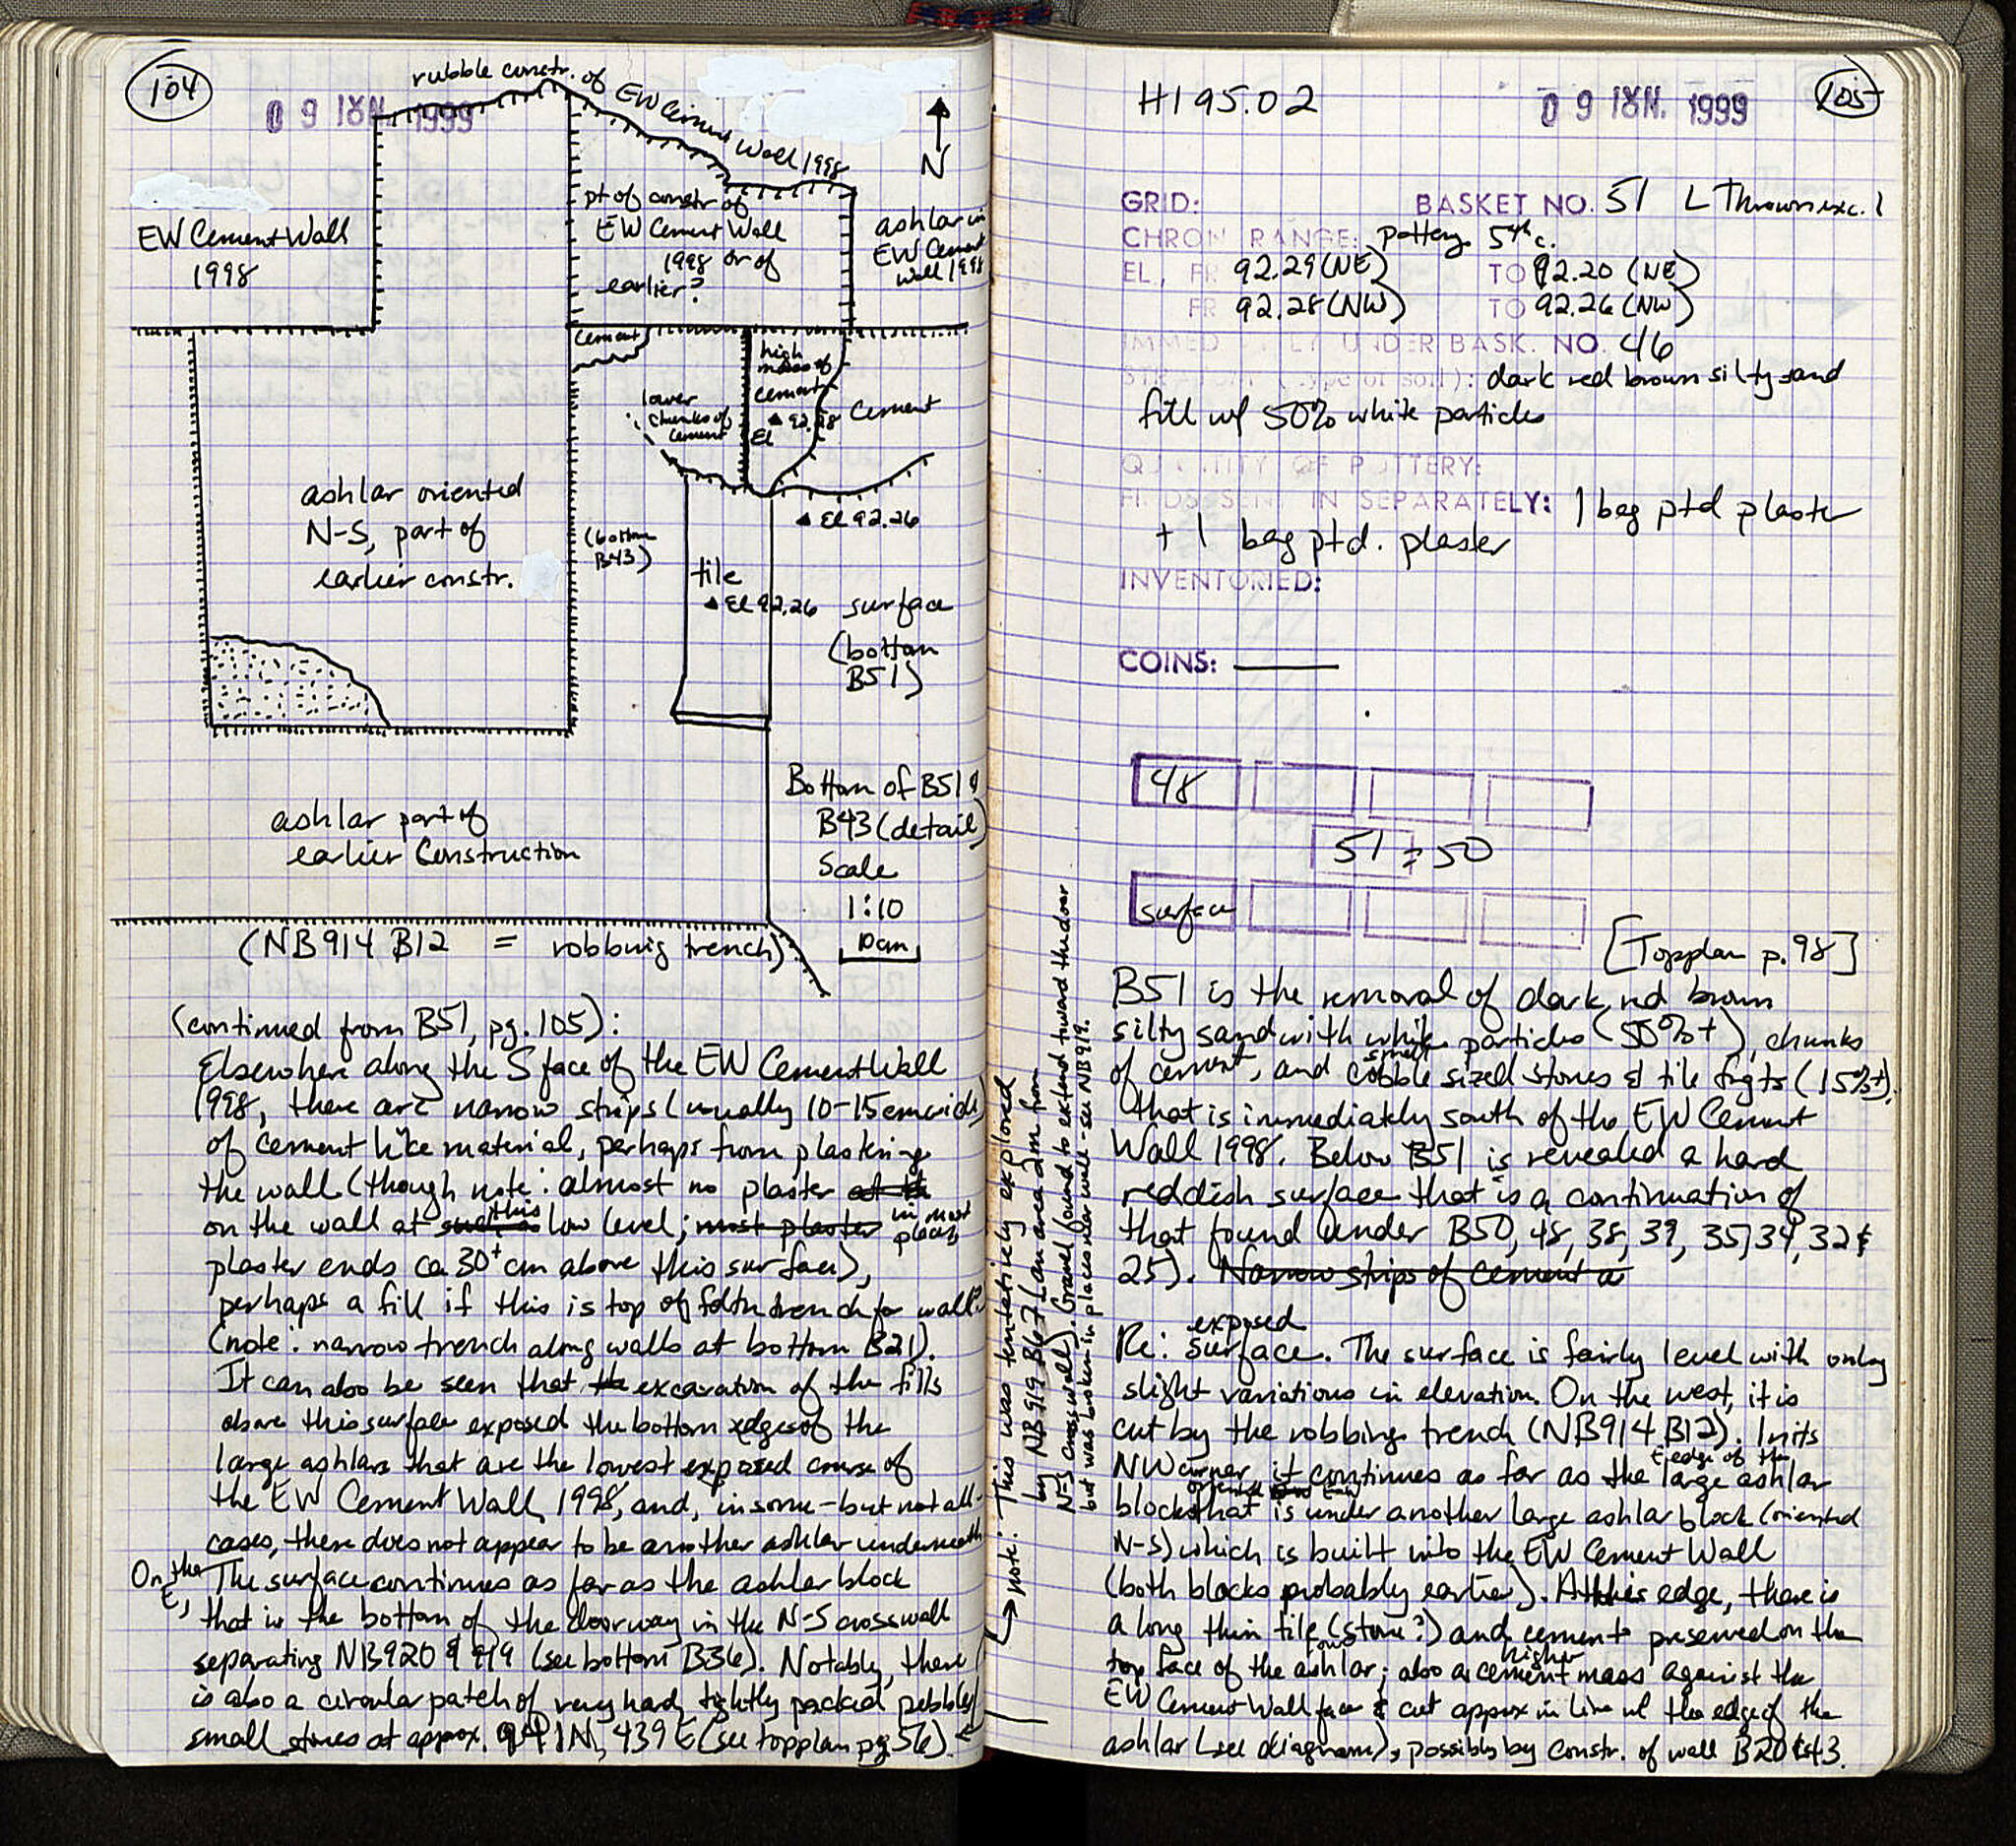 104
09 ΙΟΥΝ. 1999
rubble constr. of EW Cement Wall 1998
N
EW Cement Wall
1998
pt of constr of
EW Cement Wall
1998 or of
earlier?
ashlar in
EW Cement
Wall 1998
cement
high
mass of
cement
▲ 92.28
El
cement
lower
chunks of
cement
▲ El 92.26
ashlar oriented
N-S, part of
earlier constr.
(bottom
B43)
tile
▲ El 92.26
surface
(bottom
B51)
ashlar part of
earlier Construction
Bottom of B51 &
B43 (detail)
Scale
1:10
10cm
(NB914 B12 = robbing trench)
(continued from B51, pg. 105):
Elsewhere along the S face of the EW Cement Wall
1998, there are narrow strips (usually 10-15cm wide)
of cement like material, perhaps from plastering
the wall (though note: almost no plaster
on the wall at this low level; most plaster in most places
plaster ends ca 30+ cm above this surface),
perhaps a fill if this is top of fdtn trench for wall?
(note: narrow trench along walls at bottom B21).
It can also be seen that the excavation of the fills
above this surface exposed the bottom edges of the
large ashlars that are the lowest exposed course of
the EW Cement Wall 1998, and, in some - but not all -
cases, there does not appear to be another ashlar underneath
On the E, The surface continues as far as the ashlar block
that is the bottom of the doorway in the N-S crosswall
separating NB920 & 919 (see bottom B36). Notably, there
is also a circular patch of very hard, tightly packed pebbles/
small stones at approx. 941N, 439E (see topplan pg 56).
→ note: This was tentatively explored
by NB919 B67 (an area 2m from
N-S crosswall). Gravel found to extend toward the door
but was broken in places near wall - see NB919.
H195.02
09 ΙΟΥΝ. 1999
105
GRID:
BASKET NO. 51 L Thrown exc. 1
CHRON RANGE: pottery 5th c.
EL., FR 92.29 (NE) TO 92.20 (NE)
FR 92.28 (NW) TO 92.26 (NW)
IMMEDIATELY UNDER BASK. NO. 46
STRATUM (type of soil): dark red brown silty sand
fill w/ 50% white particles
QUANTITY OF POTTERY:
FINDS SENT IN SEPARATELY: 1 bag ptd plaster
+ 1 bag ptd. plaster
INVENTORIED:
COINS: —
48
51 = 50
surface
[Topplan p. 98]
B51 is the removal of dark red brown
silty sand with white particles (50%+), chunks
of cement, and small cobble sized stones & tile frgts (15%±).
that is immediately south of the EW Cement
Wall 1998. Below B51 is revealed a hard
reddish surface that is a continuation of
that found under B50, 48, 38, 39, 35, 34, 32 &
25). Narrow strips of cement a
Re: exposed surface. The surface is fairly level with only
slight variations in elevation. On the west, it is
cut by the robbing trench (NB914 B12). In its
NW corner it continues as far as the E edge of the large ashlar
block that is under another large ashlar block (oriented
N-S) which is built into the EW Cement Wall
(both blocks probably earlier). At this edge, there is
a long thin tile (stone?) and cement preserved on the
top face of the ashlar; also a higher cement mass against the
EW Cement Wall face & cut approx in line w/ the edge of the
ashlar (see diagram), possibly by constr. of wall B20 & 43.